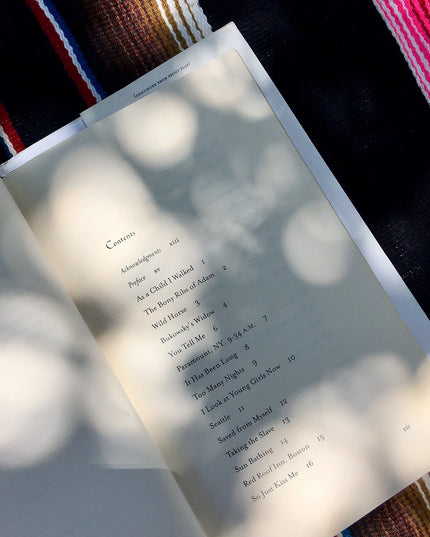 (CONTINUED FROM FRONT FLAP)
Contents
Acknowledgments xiii
Preface xv
As a Child I Walked 1
The Bony Ribs of Adam 2
Wild Horse 3
Bukowsky's Widow 4
You Tell Me 6
Paramount, NY, 9:34 A.M. 7
It Has Been Long 8
Too Many Nights 9
I Look at Young Girls Now 10
Seattle 11
Saved from Myself 12
Taking the Slave 13
Sun Bathing 14
Red Roof Inn, Boston 15
So Just Kiss Me 16
vii